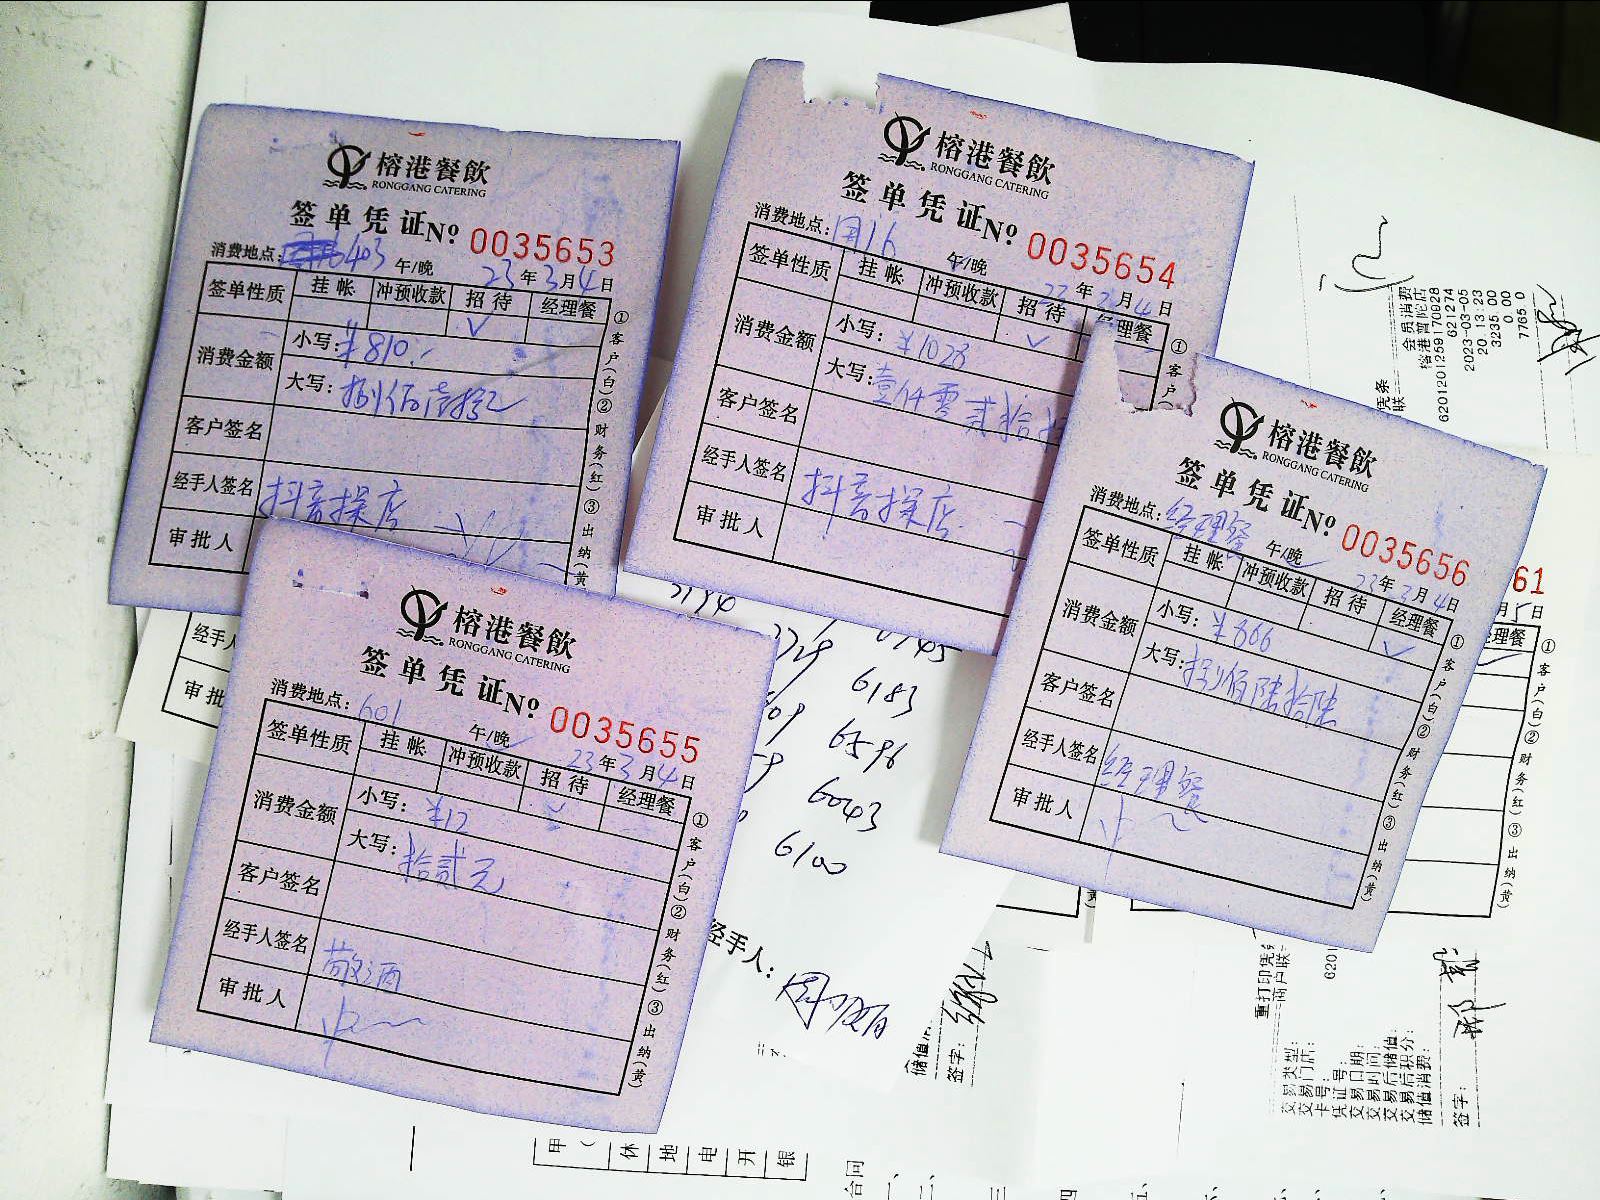 榕港餐飲
RONGGANG CATERING
签单凭证№ 0035653
消费地点: 403 午/晚 23年3月4日
签单性质 挂帐 冲预收款 招待 经理餐
√
消费金额 小写: ¥810.-
大写: 捌佰壹拾元
客户签名
经手人签名 抖音探店
审批人
①客户(白)②财务(红)③出纳(黄
榕港餐飲
RONGGANG CATERING
签单凭证№ 0035654
消费地点: 国16 午/晚 23年3月4日
签单性质 挂帐 冲预收款 招待 经理餐
√
消费金额 小写: ¥1028
大写: 壹仟零贰拾捌
客户签名
经手人签名 抖音探店
审批人
①客户(
榕港餐飲
RONGGANG CATERING
签单凭证№ 0035656
消费地点: 经理餐 午/晚 23年3月4日
签单性质 挂帐 冲预收款 招待 经理餐
√
消费金额 小写: ¥866
大写: 捌佰陆拾陆
客户签名
经手人签名 经理餐
审批人
①客户(白)②财务(红)③出纳(黄)
榕港餐飲
RONGGANG CATERING
签单凭证№ 0035655
消费地点: 601 午/晚 23年3月4日
签单性质 挂帐 冲预收款 招待 经理餐
√
消费金额 小写: ¥12
大写: 拾贰元
客户签名
经手人签名 敬酒
审批人
①客户(白)②财务(红)③出纳(黄)
61
月5日
经理餐
①客户(白)②财务(红)③出纳(黄)
经手人
审批
6183
6596
6043
6100
经手人:
会员消费
榕港普陀店
6201201259170928
621274
2023-03-05
20:13:23
3235.00
0.00
7765.0
重打印凭
商户联
6201
交易类型:
交易门店:
卡号:
凭证号:
交易日期:
交易时间:
交易后储值:
交易后积分:
储值消费:
签字:
储值
签字:
甲
休
地
电
开
银
合同
一、
二、
三
四